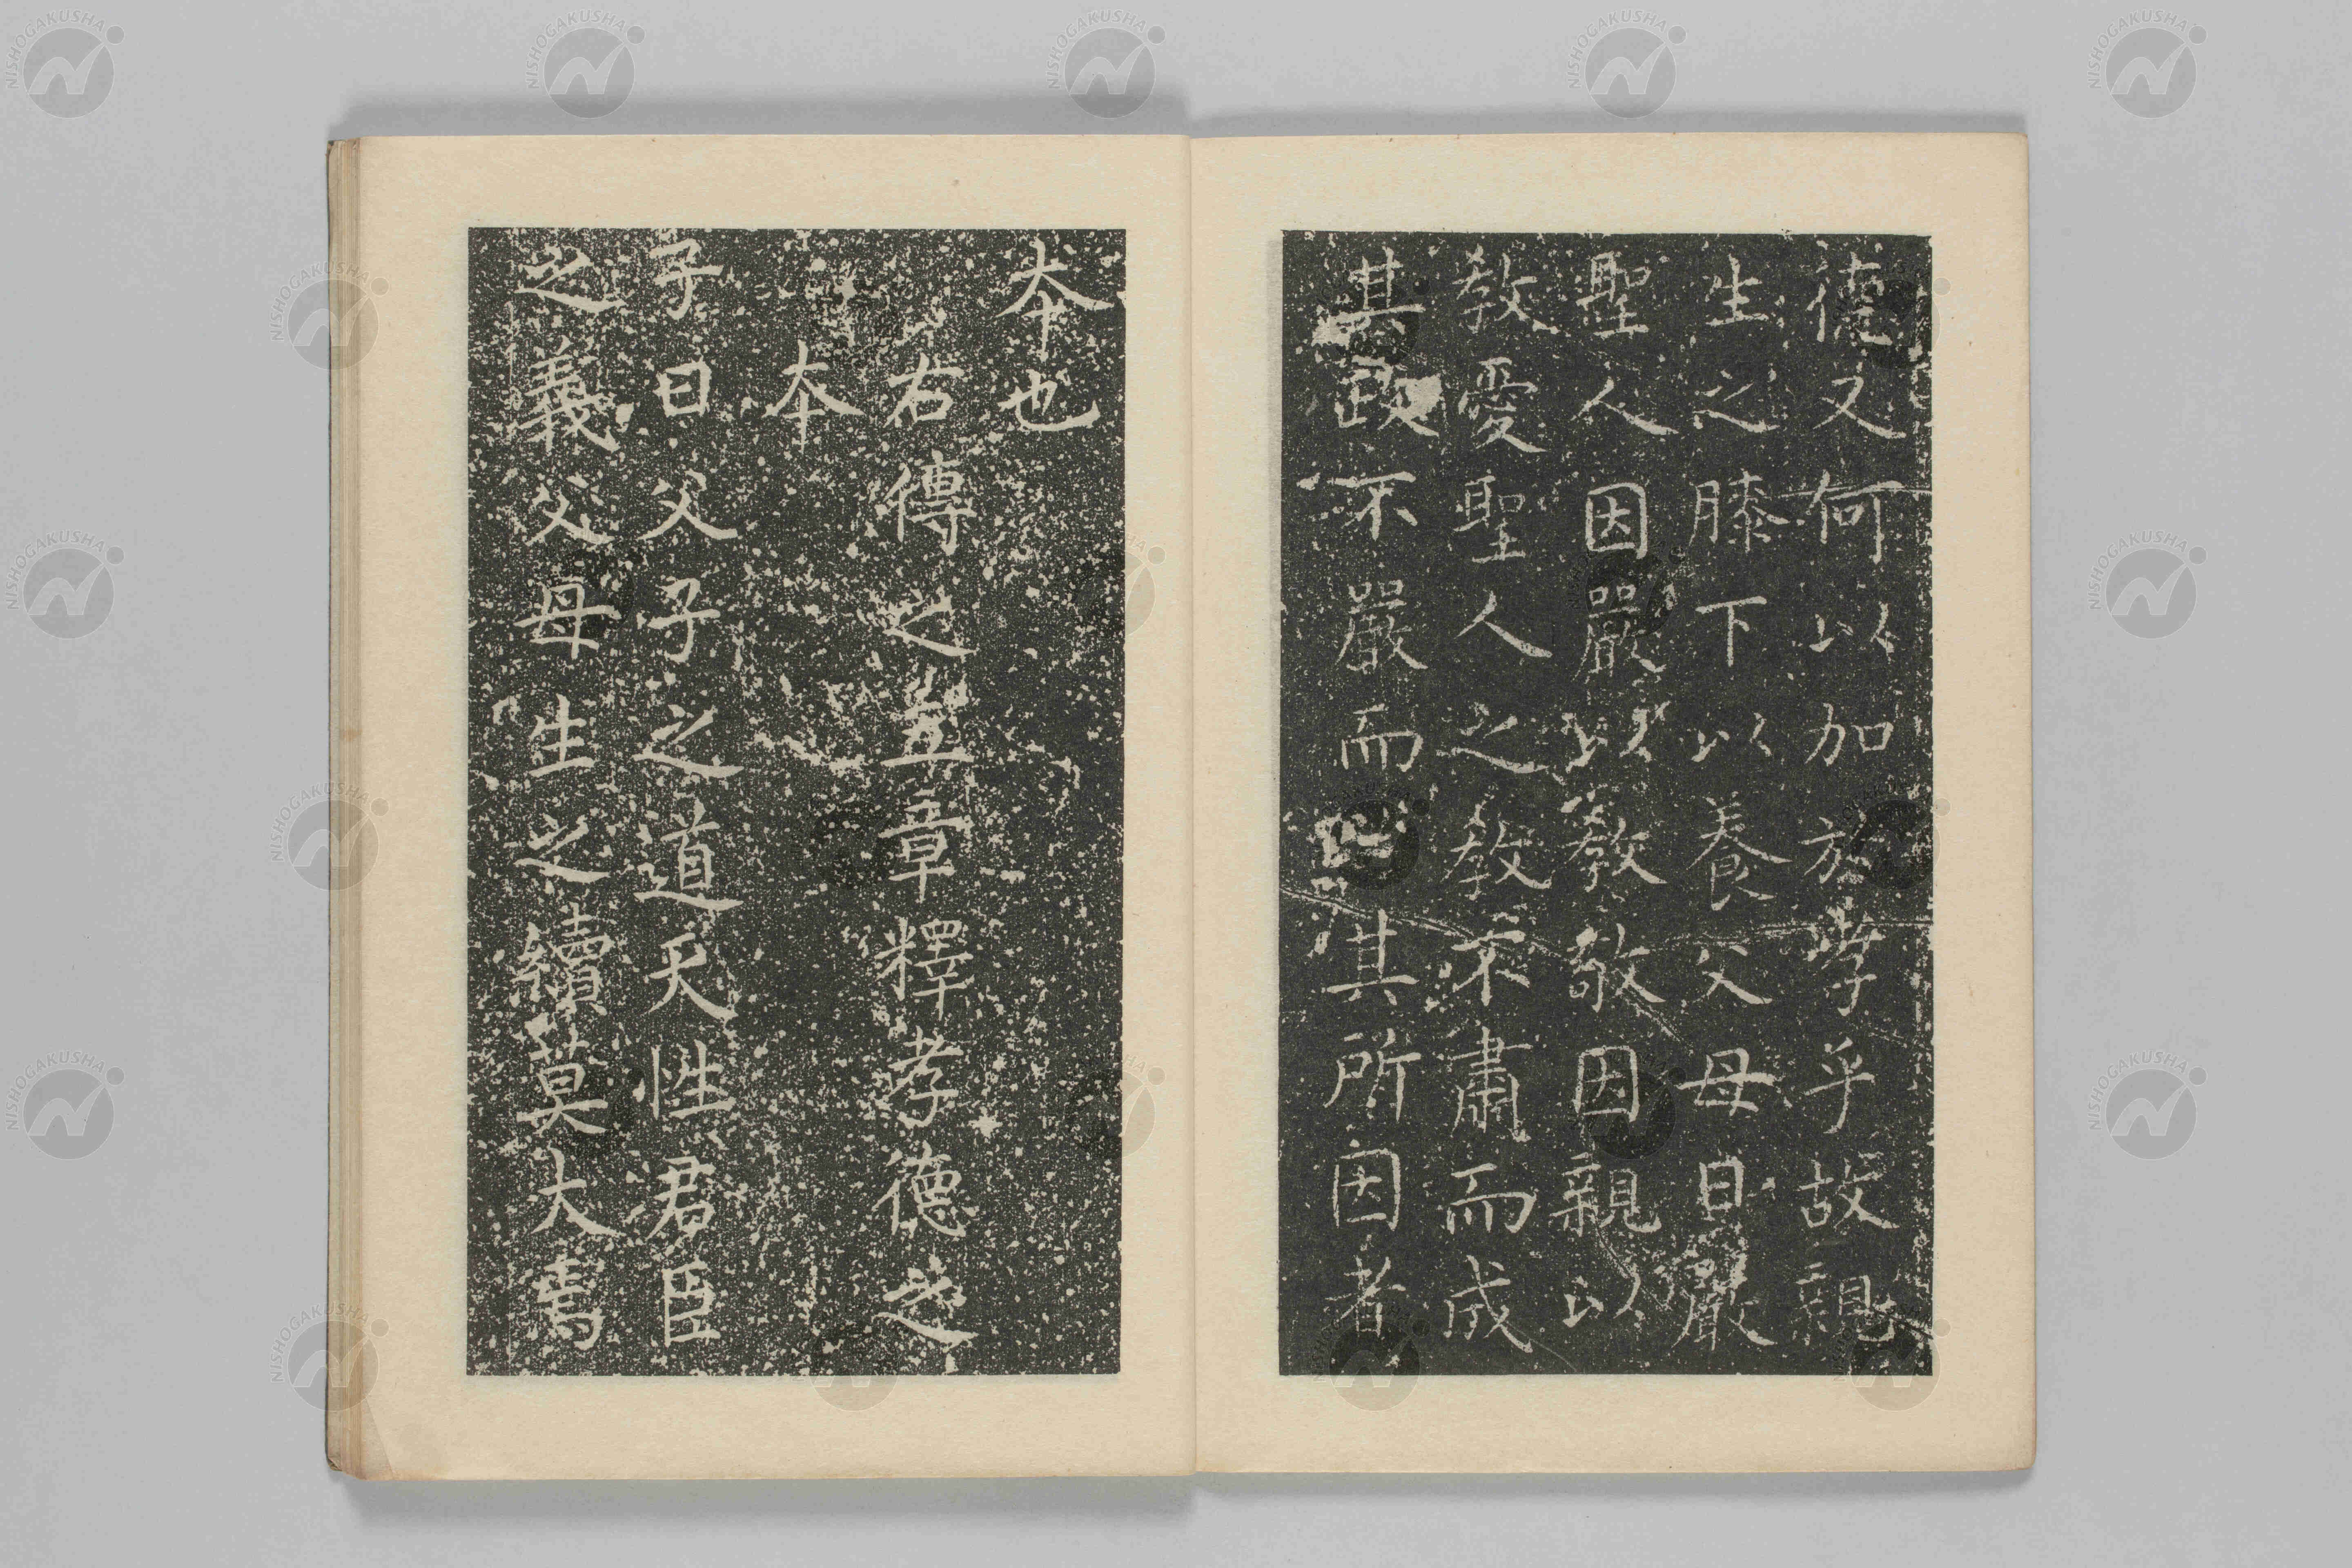 德又何以加於孝乎故親
生之膝下以養父母日嚴
聖人因嚴以教敬因親以
教愛聖人之教不肅而成
其政不嚴而治其所因者
本也
右傳之五章釋孝德之
本
子曰父子之道天性君臣
之義父母生之續莫大焉
NISHOGAKUSHA